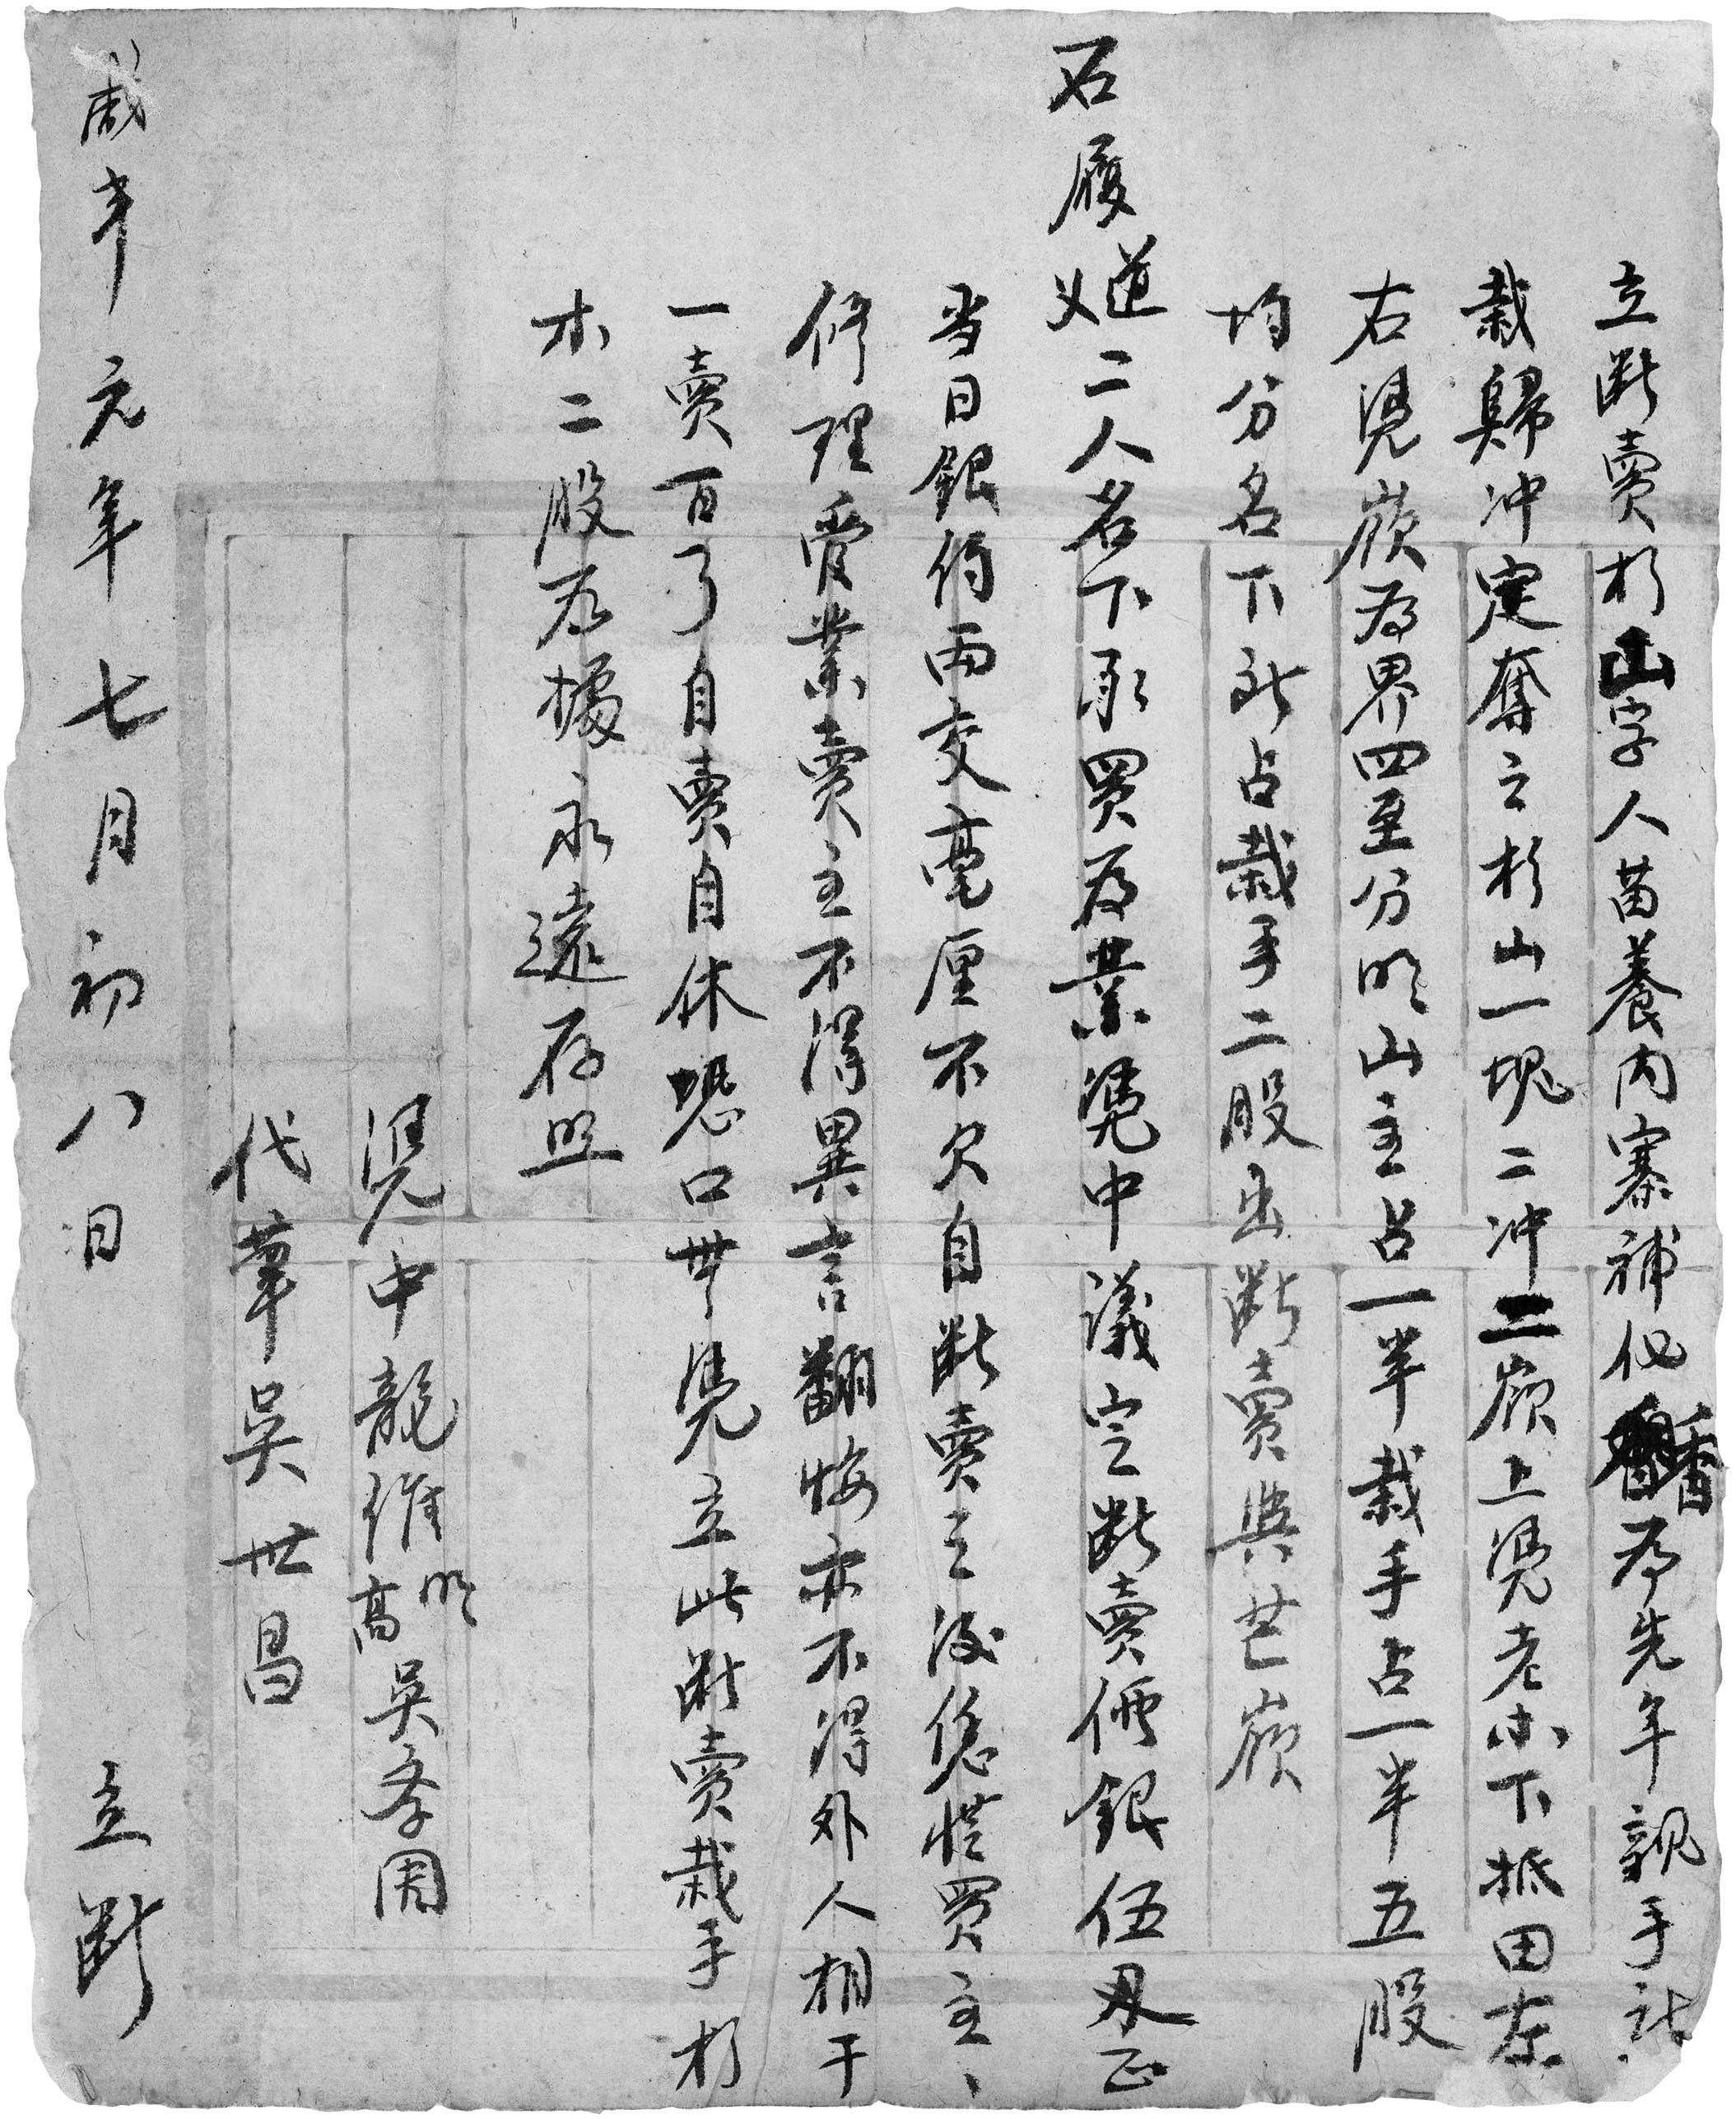 立断賣杉山字人苗養内寨補仏香為先年親手所
栽歸冲定奪之杉山一塊二冲二嶺上凴老木下抵田左
右凴嶺為界四至分明山主占一半栽手占一半五股
均分名下所占栽手二股出断賣與芒嶺
石履道义二人名下承買為業凴中議定断賣價銀伍両正
当日銀約両交毫厘不欠自断賣之後任凴買主、
修理管業賣主不得異言翻悔亦不得外人相干
一賣百了自賣自休恐口無凴立此断賣栽手杉
木二股為據永遠存照
凴中龍維明高吴孝周
代筆吴世昌
咸丰元年七月初八日立断